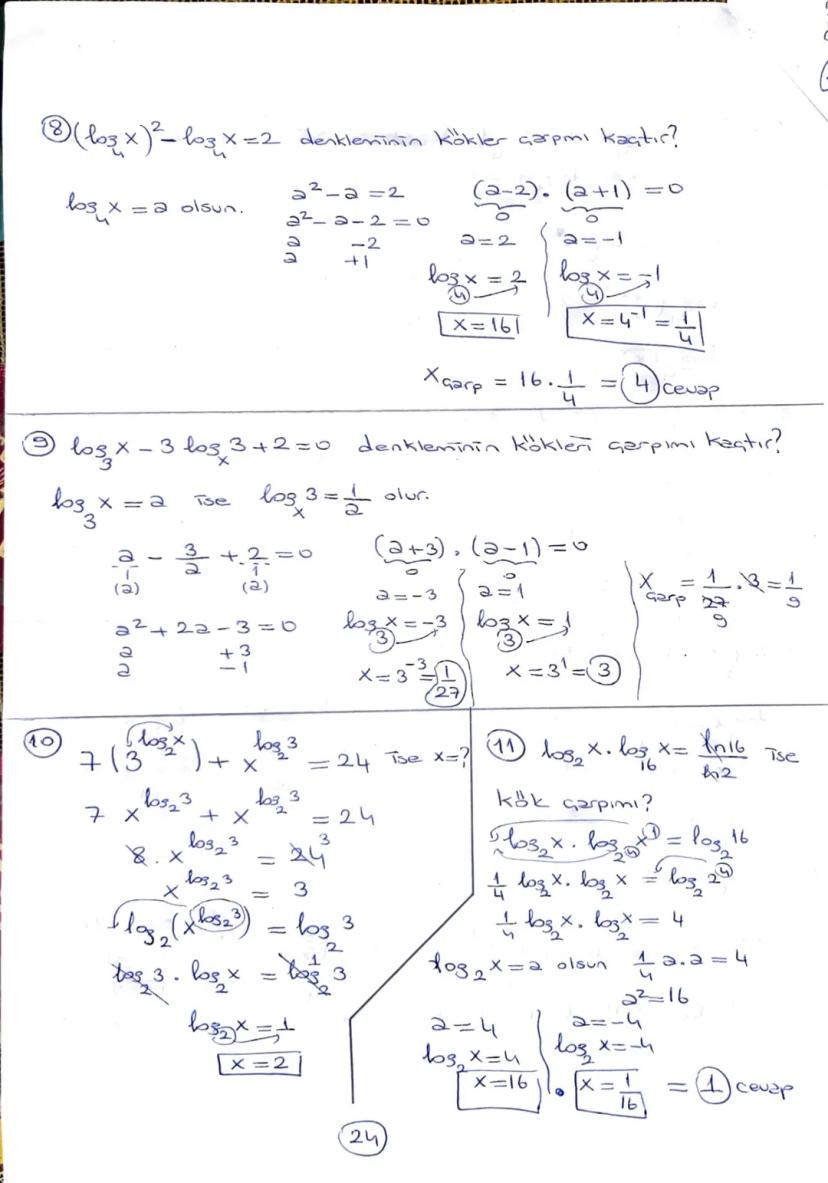 ⑧ (log₄x)² – log₄x = 2 denkleminin kökler çarpımı kaçtır?
log₄x = a olsun.
a² – a = 2
a² – a – 2 = 0
a –2
a +1
(a–2) . (a+1) = 0
0 0
a = 2
log₄x = 2
x = 16
a = –1
log₄x = –1
x = 4⁻¹ = 1/4
xçarp = 16 . 1/4 = 4 cevap
⑨ log₃x – 3 logₓ3 + 2 = 0 denkleminin kökleri çarpımı kaçtır?
log₃x = a ise logₓ3 = 1/a olur.
a/1 – 3/a + 2/1 = 0
(a) (a)
a² + 2a – 3 = 0
a +3
a –1
(a+3) . (a–1) = 0
0 0
a = –3
log₃x = –3
x = 3⁻³ = 1/27
a = 1
log₃x = 1
x = 3¹ = 3
xçarp = 1/27 . 3 = 1/9
9
⑩ 7(3^(log₂x)) + x^(log₂3) = 24 ise x = ?
7 x^(log₂3) + x^(log₂3) = 24
8 . x^(log₂3) = 24 3
x^(log₂3) = 3
log₂(x^(log₂3)) = log₂3
log₂3 . log₂x = log₂3 1
log₂x = 1
x = 2
⑪ log₂x . log₁₆x = ln16/ln2 ise
kök çarpımı?
log₂x . log₂⁴x¹ = log₂16
1/4 log₂x . log₂x = log₂2⁴
1/4 log₂x . log₂x = 4
log₂x = a olsun 1/4 a.a = 4
a² = 16
a = 4
log₂x = 4
x = 16
a = –4
log₂x = –4
. x = 1/16 = 1 cevap
24